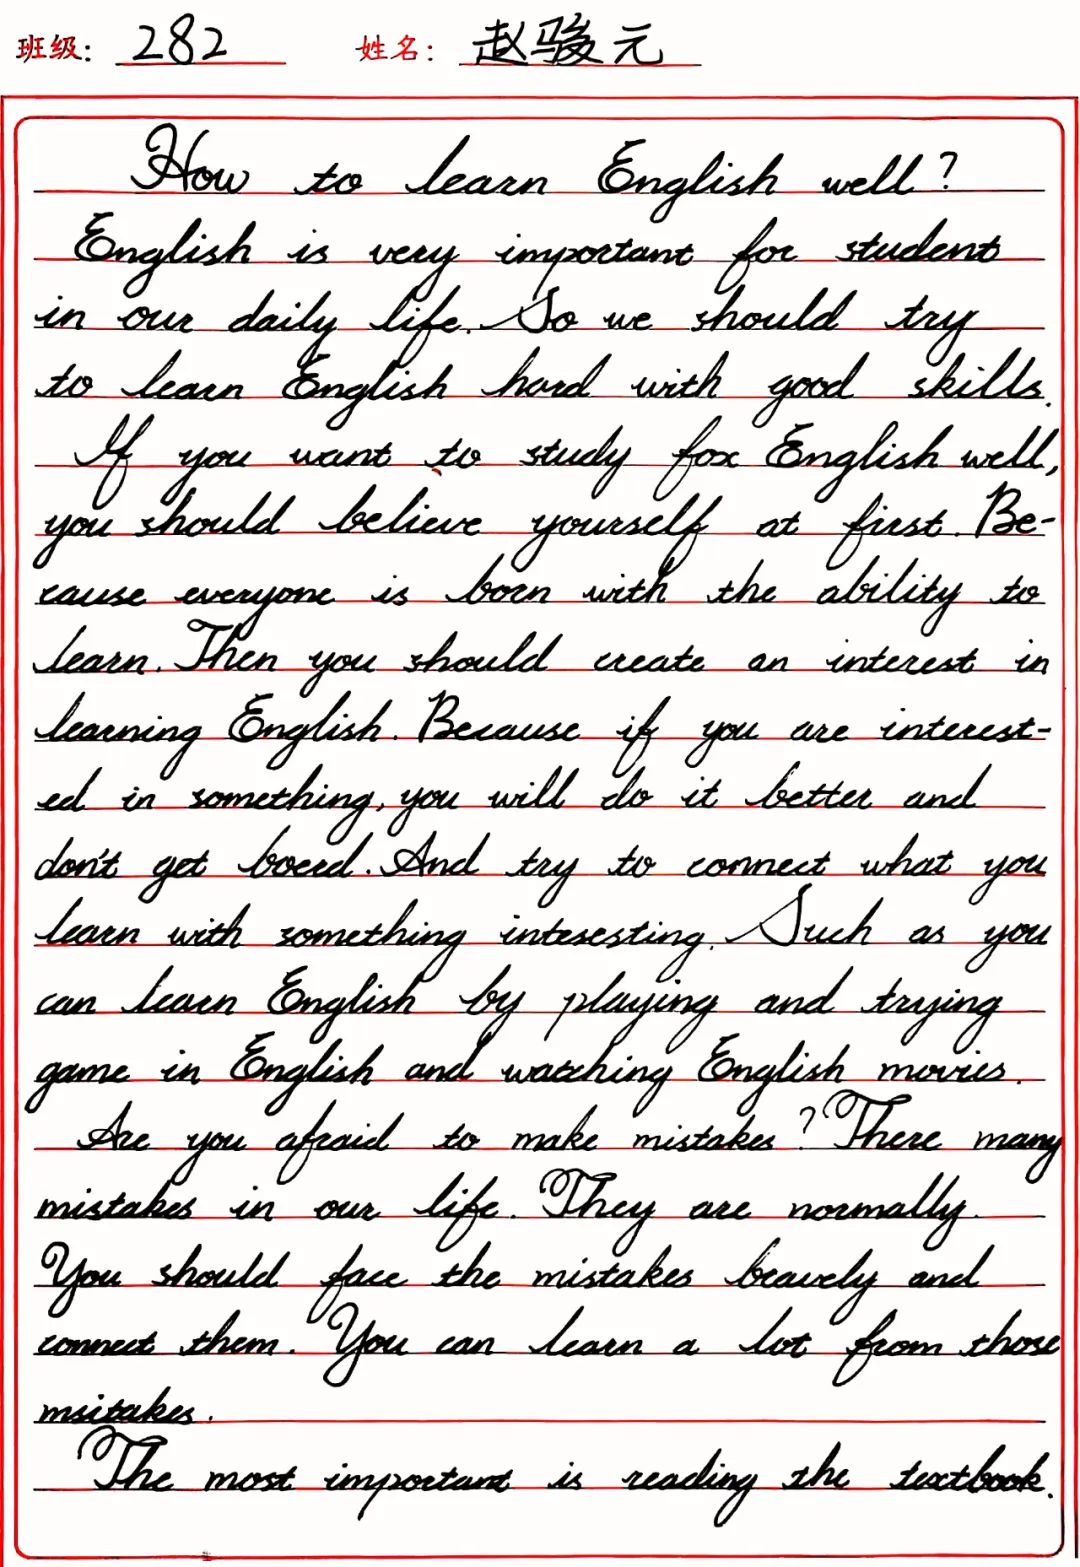 班级: 282 姓名: 赵骏元
How to learn English well?
English is very important for student
in our daily life. So we should try
to learn English hard with good skills.
If you want to study for English well,
you should believe yourself at first. Be-
cause everyone is born with the ability to
learn. Then you should create an interest in
learning English. Because if you are interest-
ed in something, you will do it better and
don't get boerd. And try to connect what you
learn with something intesesting. Such as you
can learn English by playing and trying
game in English and watching English movies.
Are you afraid to make mistakes? There many
mistakes in our life. They are normally.
You should face the mistakes bravely and
connect them. You can learn a lot from those
msitakes.
The most important is reading the textbook.